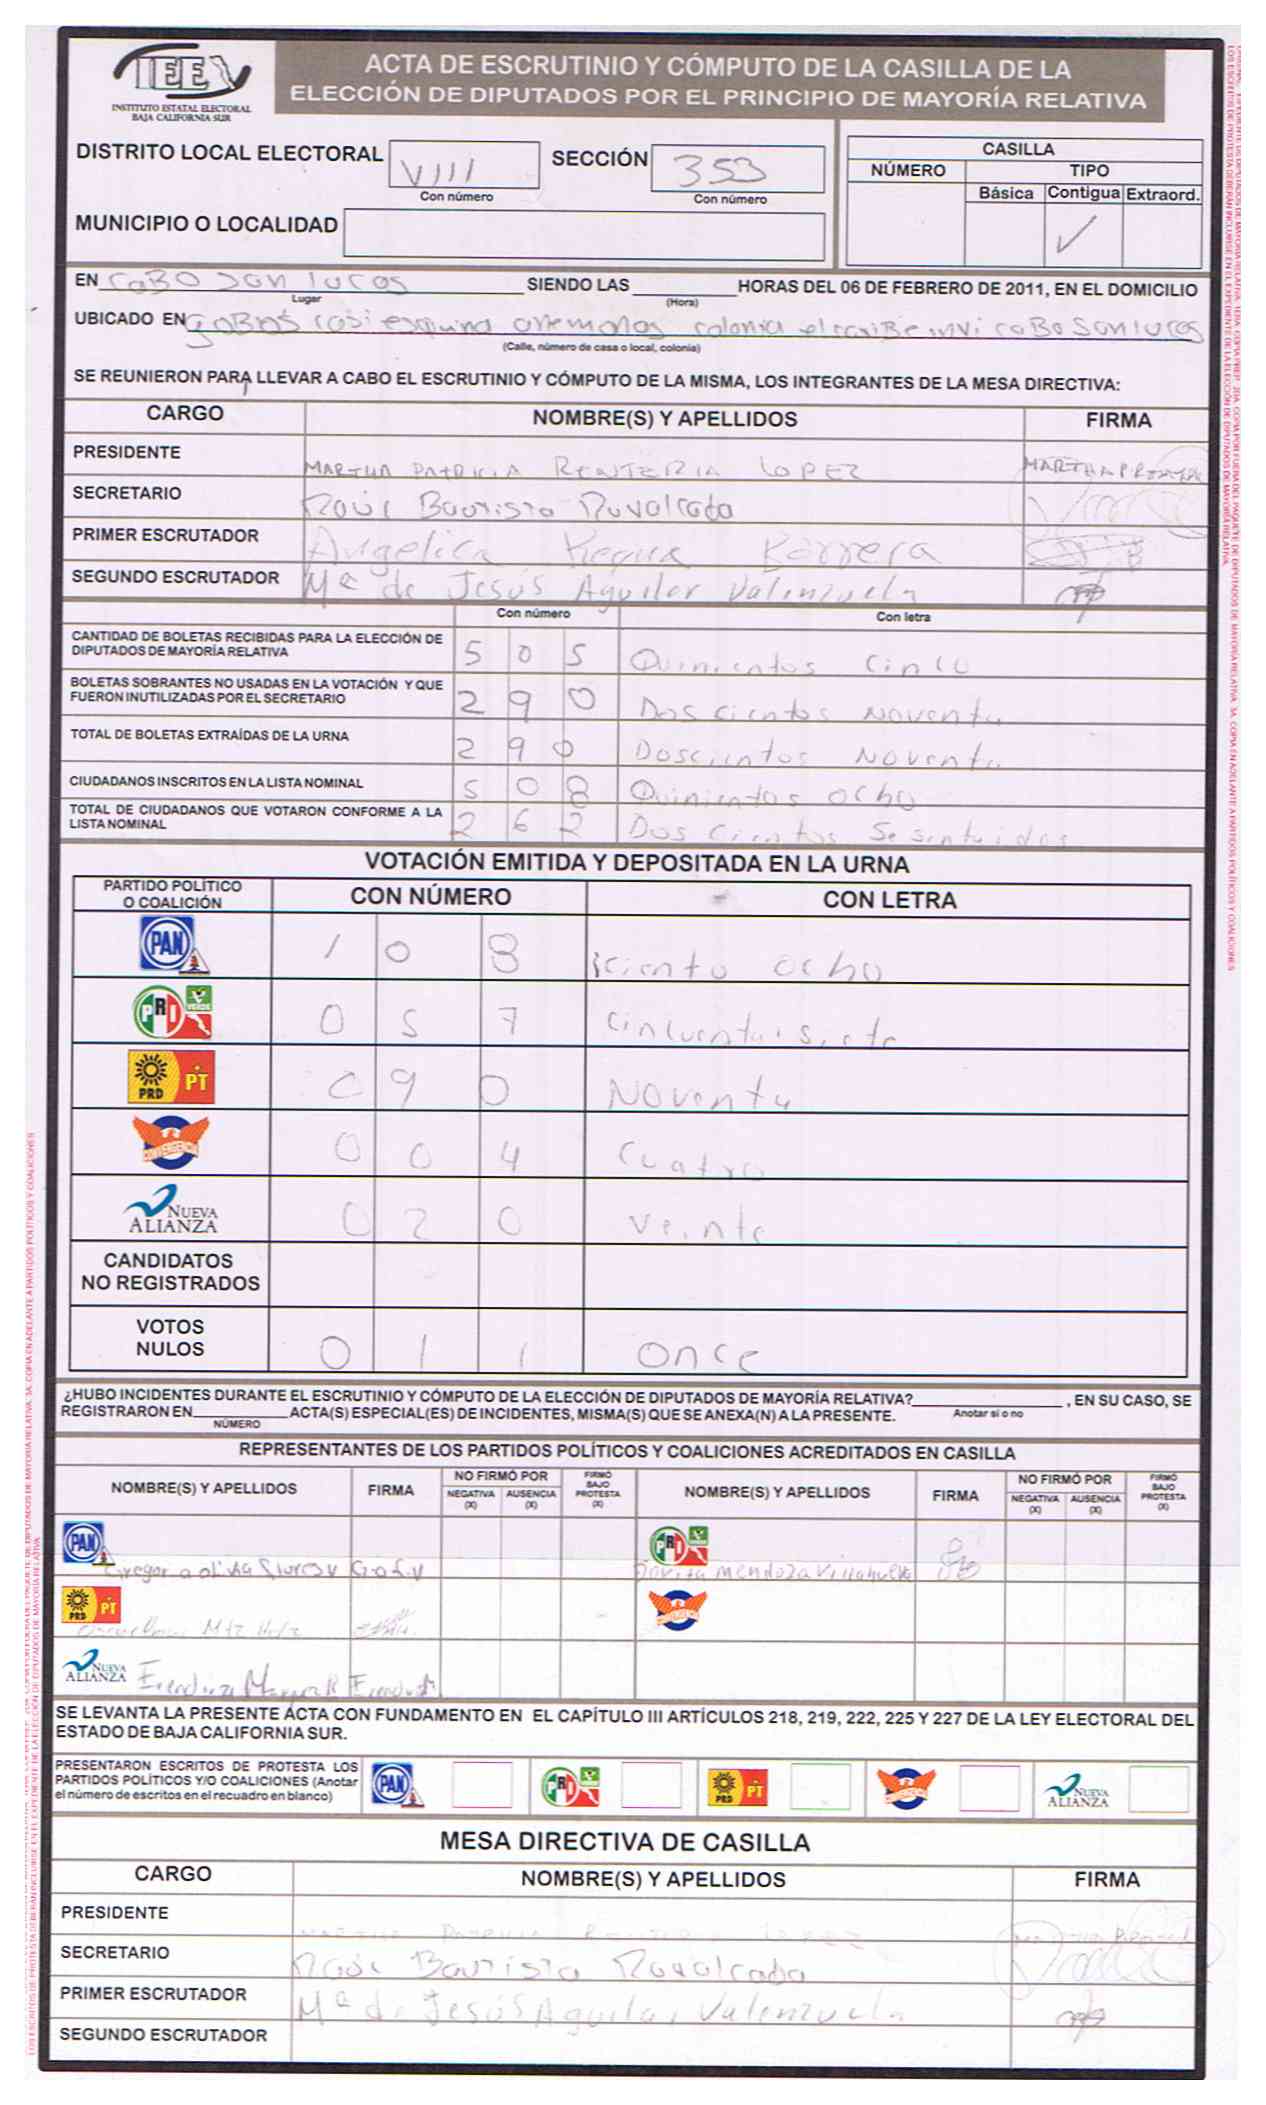 IEE
INSTITUTO ESTATAL ELECTORAL
BAJA CALIFORNIA SUR
ACTA DE ESCRUTINIO Y CÓMPUTO DE LA CASILLA DE LA
ELECCIÓN DE DIPUTADOS POR EL PRINCIPIO DE MAYORÍA RELATIVA
DISTRITO LOCAL ELECTORAL VIII SECCIÓN 353
Con número Con número
MUNICIPIO O LOCALIDAD
CASILLA
NÚMERO TIPO
Básica Contigua Extraord.
✓
EN CABO San lucas SIENDO LAS HORAS DEL 06 DE FEBRERO DE 2011, EN EL DOMICILIO
Lugar (Hora)
UBICADO EN casi esquina anemonas colonia el caribe invi cabo San lucas
(Calle, número de casa o local, colonia)
SE REUNIERON PARA LLEVAR A CABO EL ESCRUTINIO Y CÓMPUTO DE LA MISMA, LOS INTEGRANTES DE LA MESA DIRECTIVA:
CARGO NOMBRE(S) Y APELLIDOS FIRMA
PRESIDENTE MARTHA PATRICIA RENTERIA LOPEZ
SECRETARIO Raúl Bautista Ruvalcaba
PRIMER ESCRUTADOR Angelica
SEGUNDO ESCRUTADOR Mª de Jesús Aguilar Valenzuela
Con número Con letra
CANTIDAD DE BOLETAS RECIBIDAS PARA LA ELECCIÓN DE
DIPUTADOS DE MAYORÍA RELATIVA 5 0 5 Quinientos Cinco
BOLETAS SOBRANTES NO USADAS EN LA VOTACIÓN Y QUE
FUERON INUTILIZADAS POR EL SECRETARIO 2 9 0 Dos cientos Noventa
TOTAL DE BOLETAS EXTRAÍDAS DE LA URNA 2 9 0 Doscientos Noventa
CIUDADANOS INSCRITOS EN LA LISTA NOMINAL 5 0 8 Quinientos ocho
TOTAL DE CIUDADANOS QUE VOTARON CONFORME A LA
LISTA NOMINAL 2 6 2 Dos Cientos Sesentaidos
VOTACIÓN EMITIDA Y DEPOSITADA EN LA URNA
PARTIDO POLÍTICO
O COALICIÓN CON NÚMERO CON LETRA
PAN 1 0 8 ciento ocho
PRI VERDE 0 5 7 Cincuentaisiete
PRD PT 0 9 0 Noventa
CONVERGENCIA 0 0 4 Cuatro
NUEVA
ALIANZA 0 2 0 Veinte
CANDIDATOS
NO REGISTRADOS
VOTOS
NULOS 0 1 1 once
¿HUBO INCIDENTES DURANTE EL ESCRUTINIO Y CÓMPUTO DE LA ELECCIÓN DE DIPUTADOS DE MAYORÍA RELATIVA? , EN SU CASO, SE
REGISTRARON EN ACTA(S) ESPECIAL(ES) DE INCIDENTES, MISMA(S) QUE SE ANEXA(N) A LA PRESENTE. Anotar sí o no
NÚMERO
REPRESENTANTES DE LOS PARTIDOS POLÍTICOS Y COALICIONES ACREDITADOS EN CASILLA
NOMBRE(S) Y APELLIDOS FIRMA NO FIRMÓ POR NEGATIVA (X) AUSENCIA (X) FIRMÓ BAJO PROTESTA (X) NOMBRE(S) Y APELLIDOS FIRMA NO FIRMÓ POR NEGATIVA (X) AUSENCIA (X) FIRMÓ BAJO PROTESTA (X)
PAN PRI VERDE
Mendoza Villanueva
PRD PT CONVERGENCIA
NUEVA
ALIANZA
SE LEVANTA LA PRESENTE ACTA CON FUNDAMENTO EN EL CAPÍTULO III ARTÍCULOS 218, 219, 222, 225 Y 227 DE LA LEY ELECTORAL DEL
ESTADO DE BAJA CALIFORNIA SUR.
PRESENTARON ESCRITOS DE PROTESTA LOS
PARTIDOS POLÍTICOS Y/O COALICIONES (Anotar
el número de escritos en el recuadro en blanco)
PAN PRI VERDE PRD PT CONVERGENCIA NUEVA ALIANZA
MESA DIRECTIVA DE CASILLA
CARGO NOMBRE(S) Y APELLIDOS FIRMA
PRESIDENTE
SECRETARIO Raúl Bautista Ruvalcaba
PRIMER ESCRUTADOR Mª de Jesús Aguilar Valenzuela
SEGUNDO ESCRUTADOR